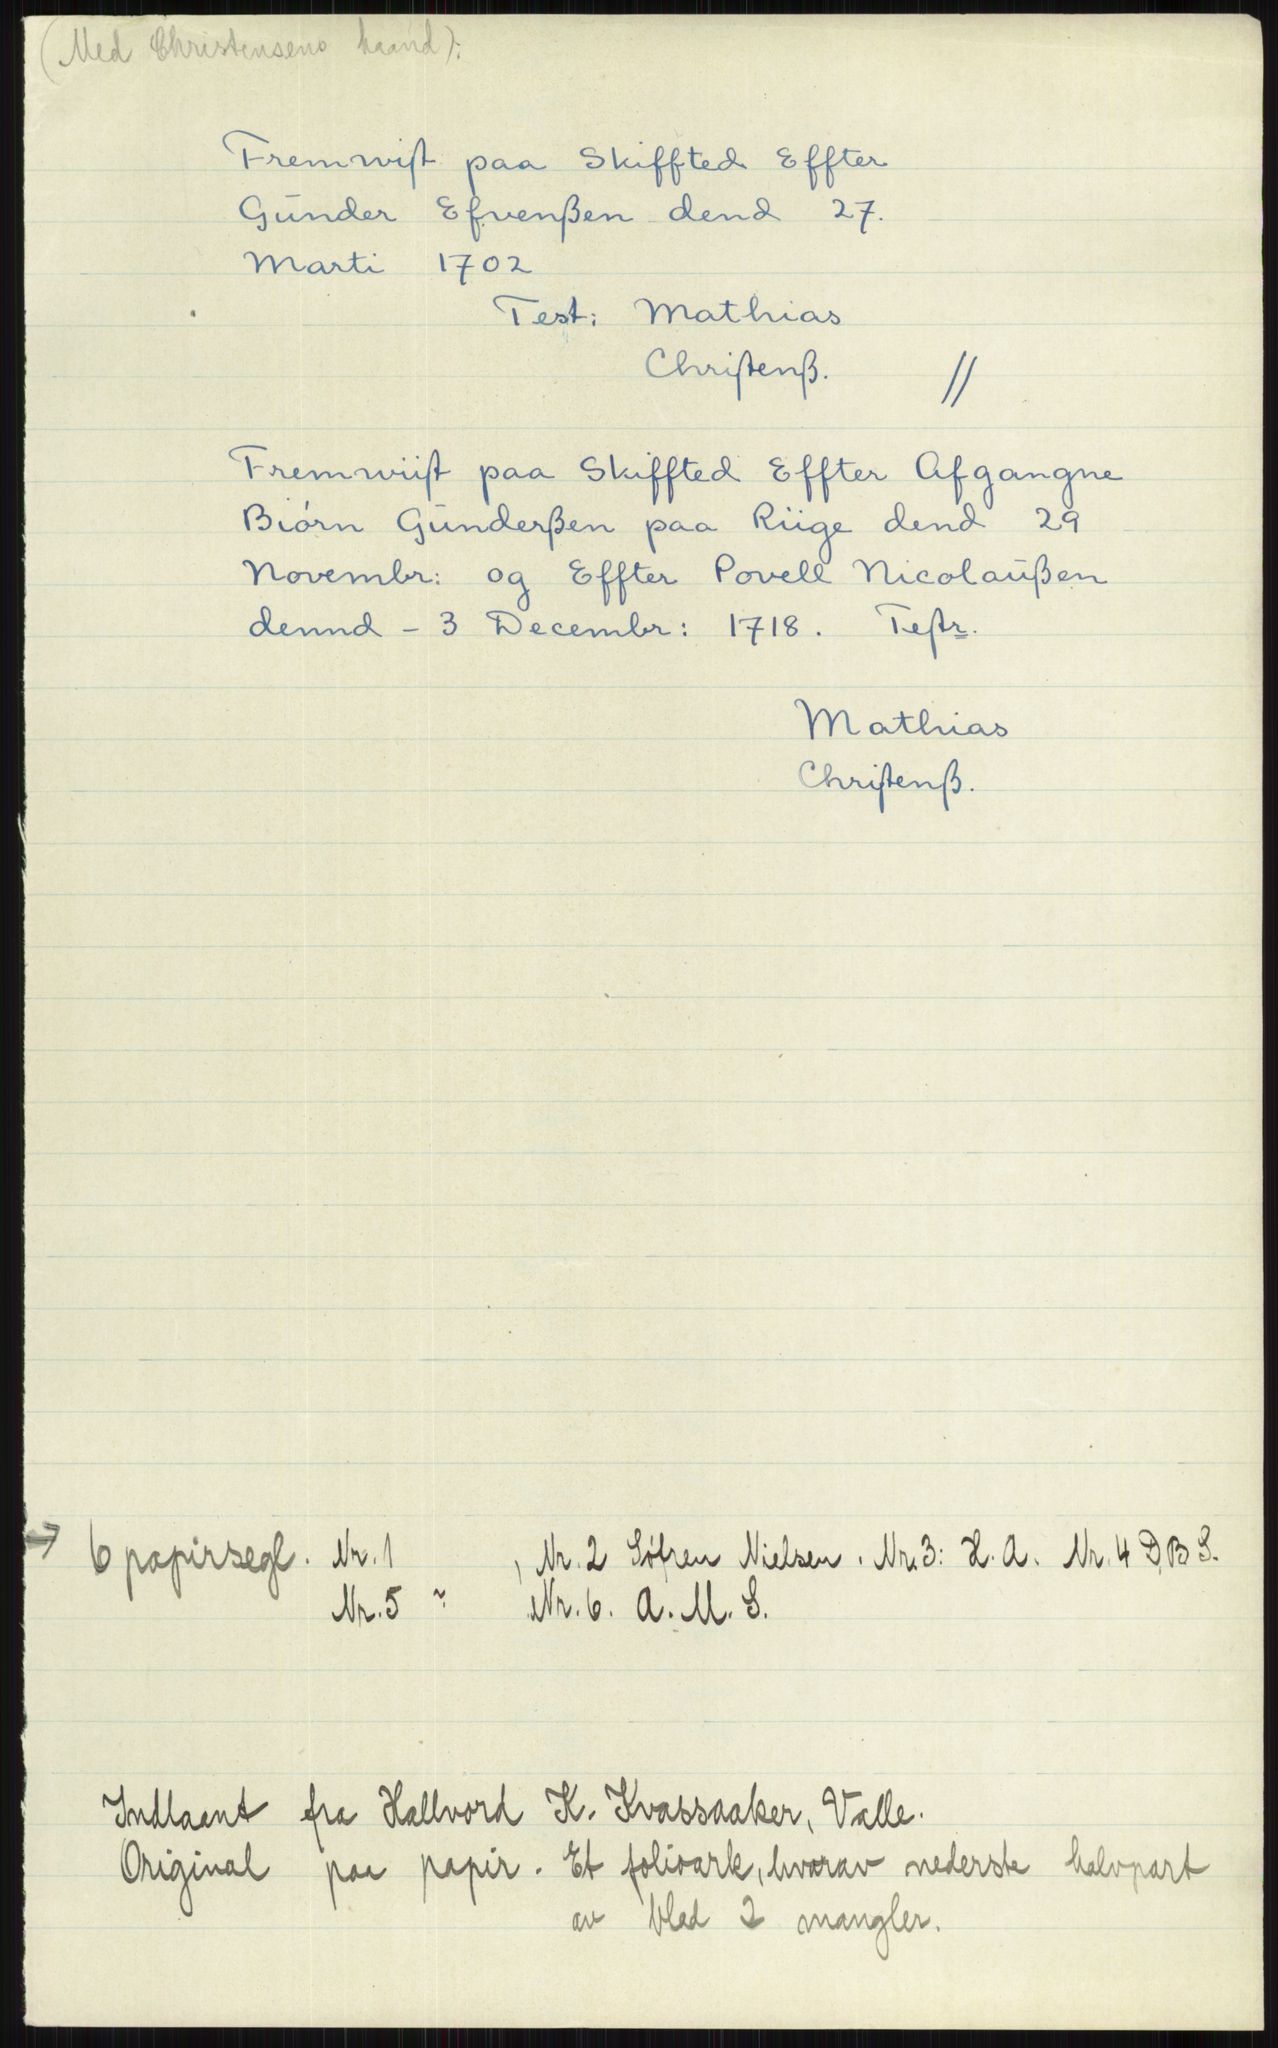 (Med Christensens haand):
Fremwist paa Skiffted Effter
Gŭnder Efvenßen dend 27.
Marti 1702
Test: Mathias
Christenß. //
Fremwiist paa Skiffted Effter Afgangne
Biórn Gŭnderßen paa Riige dend 29
Novembr: og Effter Povell Nicolaŭßen
dennd - 3 Decembr: 1718. Testr.
Mathias
Christenß.
→ 6 papirsegl. Nr. 1 , Nr. 2 Søfren Nielsen. Nr. 3: H. A. Nr. 4 D B S.
Nr. 5 ~ Nr. 6. A. M. S.
Indlaant fra Hallvord K. Kvassaaker, Valle.
Original paa papir. Et folioark, hvorav nederste halvpart
av blad 2 mangler.